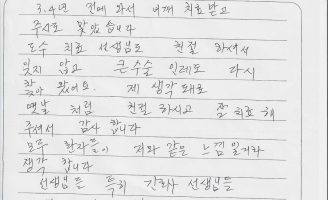 3.4년 전에 와서 어깨 치료 받고
주사도 맞았습니다
도수 치료 선생님도 친절 하셔서
잊지 않고 큰수술 인데도 다시
찾아 왔어요. 제 생각 대로
옛날 처럼 친절 하시고 잘 치료 해
주셔서 감사 합니다
모두 환자들이 저와 같은 느낌 일거라
생각 합니다
선생님들 특히 간호사 선생님들